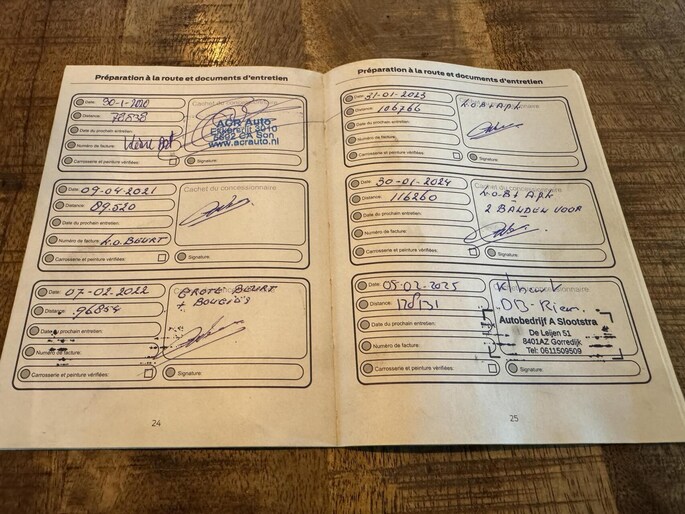 Préparation à la route et documents d'entretien
Date: 30-1-2020
Distance: 78838
Date du prochain entretien:
Numéro de facture:
Carrosserie et peinture vérifiées:
Cachet du concessionnaire
ACR Auto
Ekkersrijt 3010
5692 CA Son
www.acrauto.nl
Signature:
Date: 09-04-2021
Distance: 89.520
Date du prochain entretien:
Numéro de facture: L.O. BEURT
Carrosserie et peinture vérifiées:
Cachet du concessionnaire
Signature:
Date: 07-02-2022
Distance: 96854
Date du prochain entretien:
Numéro de facture:
Carrosserie et peinture vérifiées:
GROTE BEURT
+ BOUGIES
Signature:
24
Préparation à la route et documents d'entretien
Date: 31-01-2023
Distance: 106766
Date du prochain entretien:
Numéro de facture:
Carrosserie et peinture vérifiées:
Signature:
Date: 30-01-2024
Distance: 116260
Date du prochain entretien:
Numéro de facture:
Carrosserie et peinture vérifiées:
Cachet du concessionnaire
2 BANDEN VOOR
Signature:
Date: 05-02-2025
Distance:
Date du prochain entretien:
Numéro de facture:
Carrosserie et peinture vérifiées:
DB-Riem.
Autobedrijf A Slootstra
De Leijen 51
8401AZ Gorredijk
Tel: 0611509509
Signature:
25